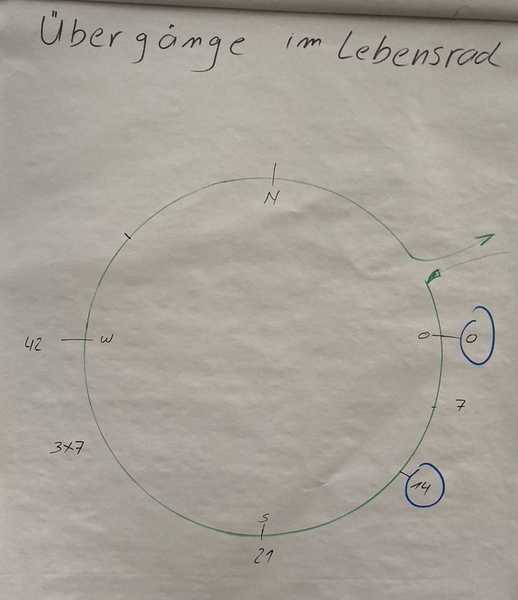 Übergänge im Lebensrad
N
42 W O 0
7
3x7
14
S
21